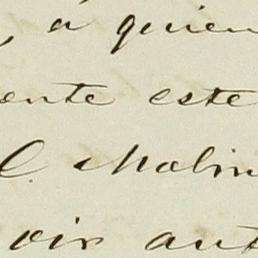 , a quien
ente este
C. Molin
oir ant